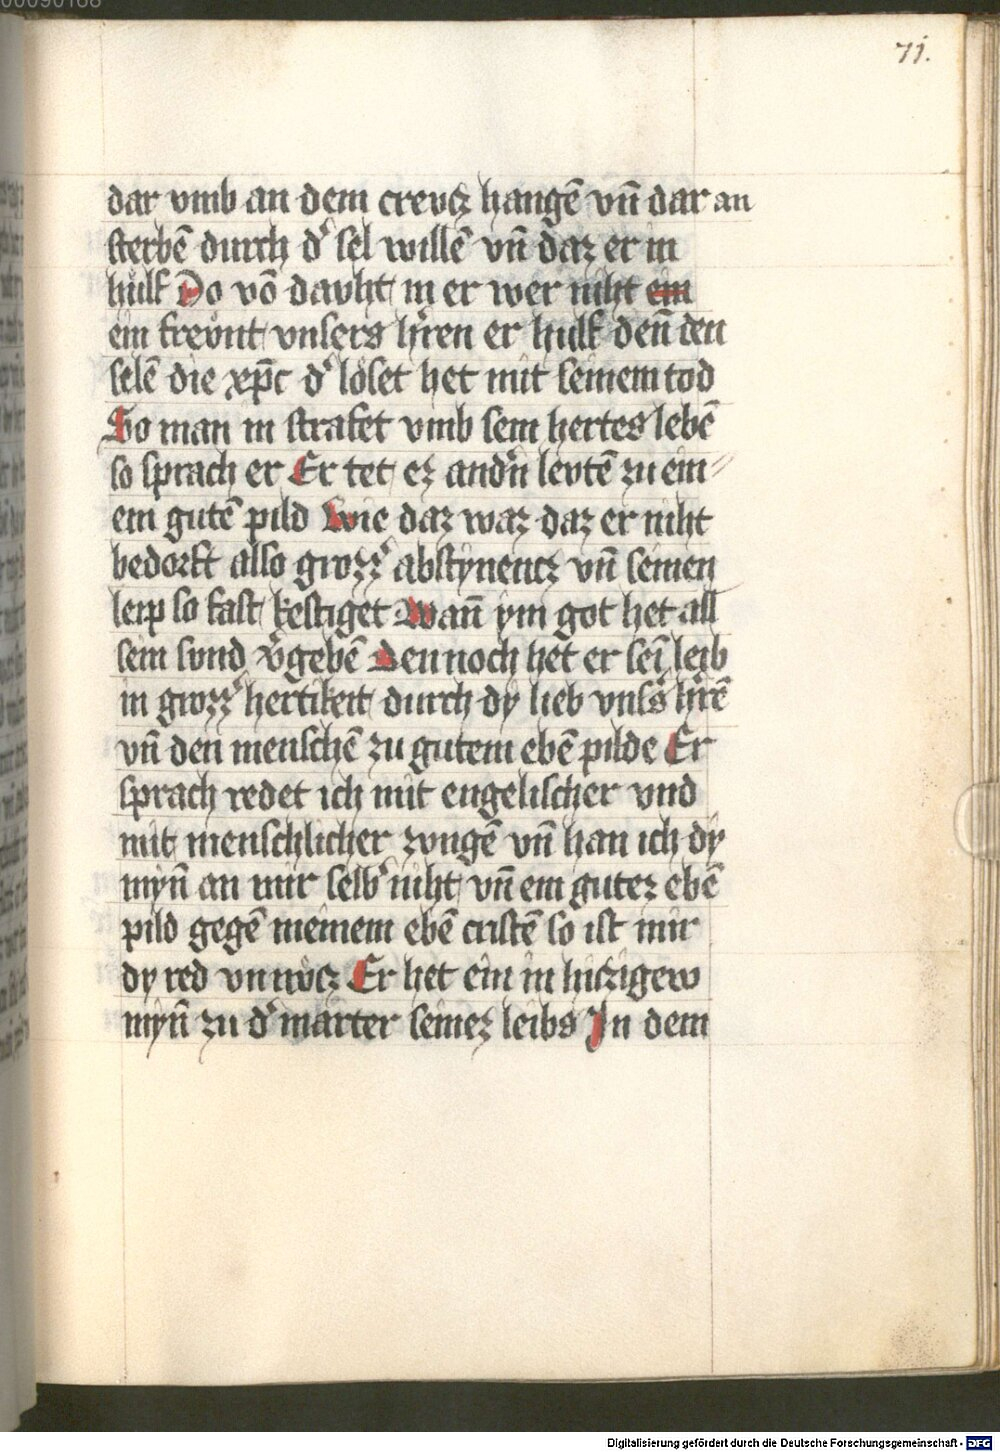 00090168
71.
dar vmb an dem crevcz hangē vn̄ dar an
sterbē durch d' sel willē vn̄ daz er in
hülf Do vō davht in er wer niht ein
ein frevnt vnsers h'ren er hulf den̄ den
selē die xp̄c d' löset het mit seinem tod
So man in strafet vmb sein hertes lebē
so sprach er Er tet ez and'n levtē zu ein⸗
em gutē pild Wie daz waz daz er niht
bedorft also grozz' abstynencz vn̄ seinen
leip so fast kestiget Wan̄ ym got het all
sein svnd v'gebē Dennoch het er sei leib
in grozz' hertikeit durch dy lieb vns's h'rē
vn̄ den menschē zu gutem ebē pilde Er
sprach redet ich mit engelischer vnd
mit menschlicher zvngē vn̄ han ich dy
myn̄ an mir selb' niht vn̄ ein gutez ebē
pild gegē meinem ebē cristē so ist mir
dy red vnnvcz Er het ein inhiczigew
myn̄ zu d' marter seinez leibs In dem
Digitalisierung gefördert durch die Deutsche Forschungsgemeinschaft - DFG